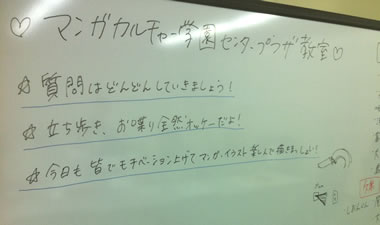 ♡ マンガカルチャー学園センタープラザ教室♡
☆ 質問はどんどんしていきましょう！
☆ 立ち歩き、お喋り全然オッケーだよ！
☆ 今日も皆でモチベーション上げてマンガ、イラスト楽しんで描きましょう！